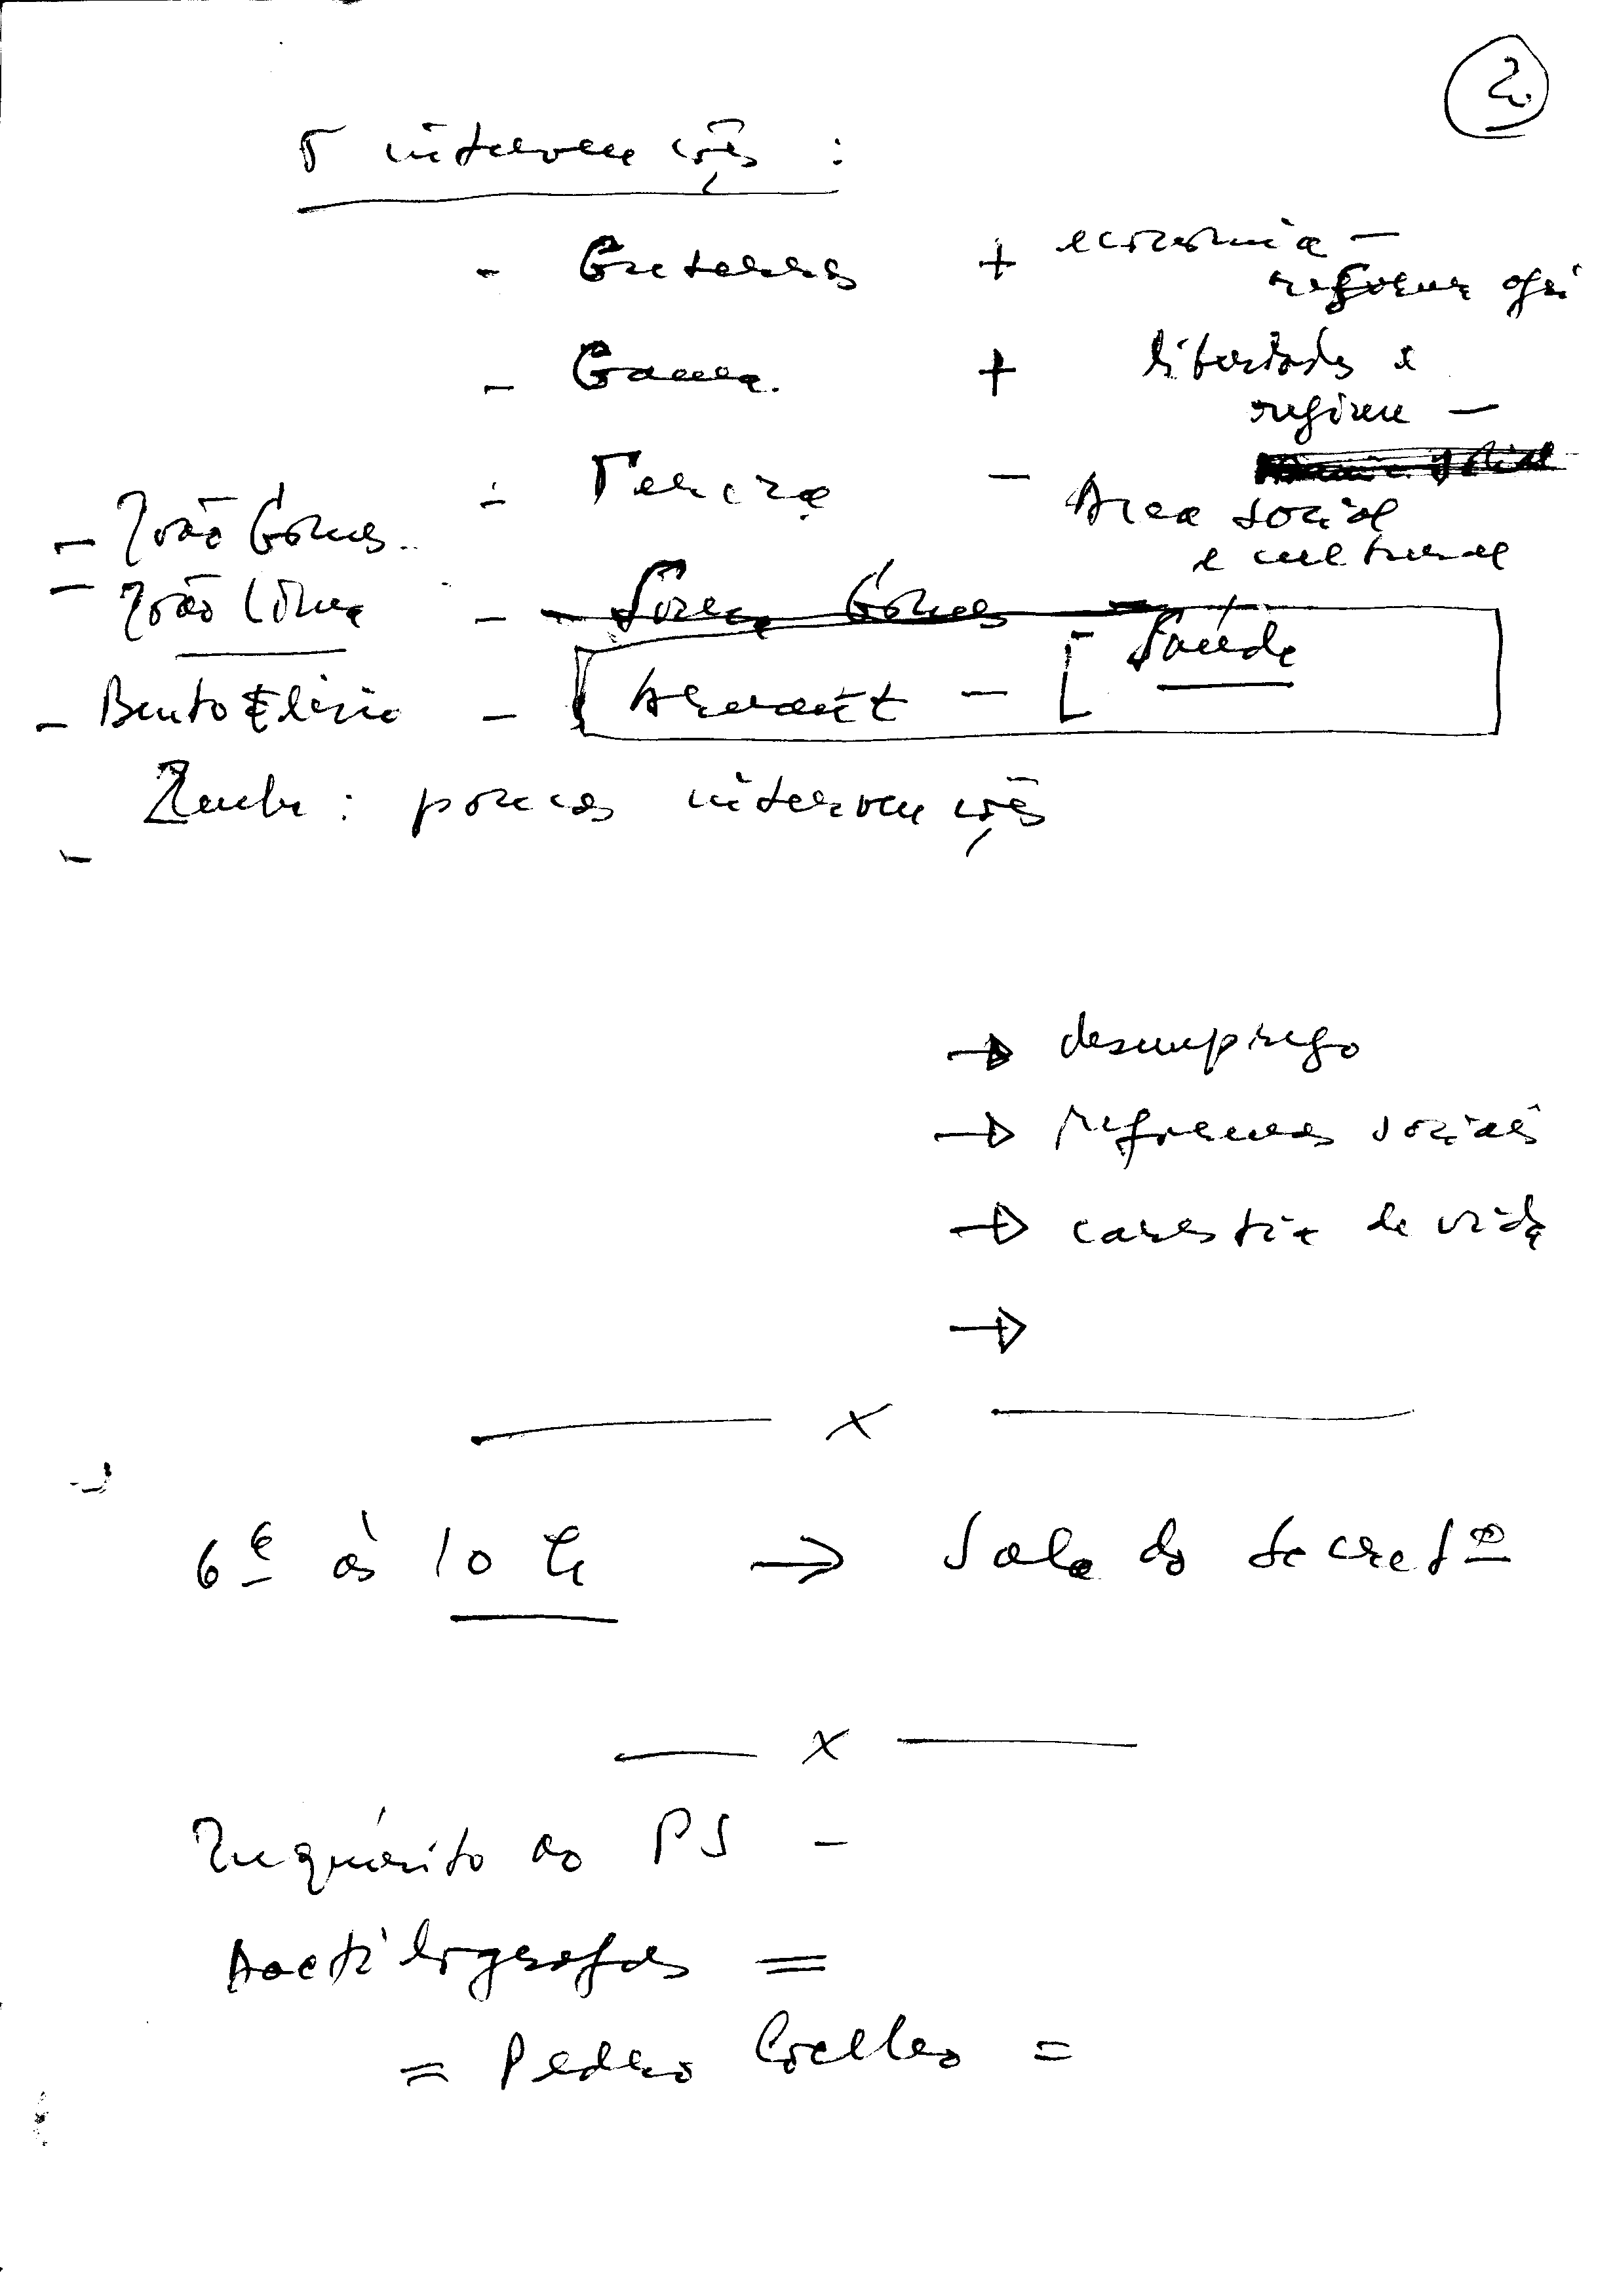 2.
5 intervenções :
- Guterres + economia -
reforma agrí
- Gama. + liberdades e
regime -
- Tercza - Area social
e cultural
- João Gomes.
- João Lima - Sousa Gomes
- Bento Elísio - Arnaut - [ - Saúde
Zenha : poucas intervenções
-
→ desemprego
→ reformas sociais
→ carestia de vida
→
x
6ª às 10 h → Sala do Secretº
x
Inquérito ao PS -
Dactilógrafas =
= Pedro Coelho =